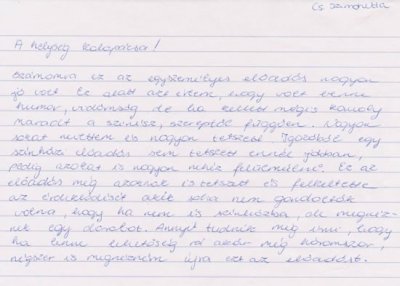 Cs. Szimonetta
A helység kalapácsa!
Számomra ez az egyszemélyes előadás nagyon
jó volt. Ez alatt azt értem, hogy volt benne
humor, vidámság de ha kellett mégis komoly
maradt a színész, szereptől függően. Nagyon
sokat nevettem és nagyon tetszett. Igazából egy
színházi előadás sem tetszett ennél jobban,
pedig azokat is nagyon nehéz felülmúlni. Ez az
előadás még azoknak is tetszett és felkeltette
az érdeklődését akik soha nem gondolták
volna, hogy ha nem is színházba, de megnéz-
nek egy darabot. Annyit tudnék még írni, hogy
ha lenne lehetőség rá akár még háromszor,
négyszer is megnézném újra ezt az előadást.